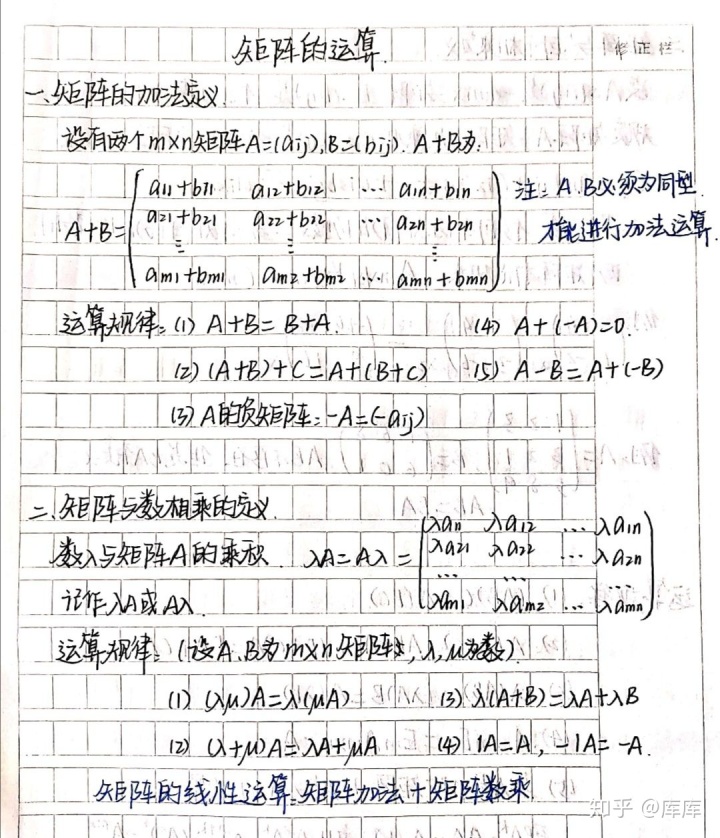 矩阵的运算
修正栏
一、矩阵的加法定义
设有两个m×n矩阵A=(aij),B=(bij). A+B为:
A+B=
a11+b11 a12+b12 … a1n+b1n
a21+b21 a22+b22 … a2n+b2n
⋮ ⋮ ⋮
am1+bm1 am2+bm2 … amn+bmn
注: A.B必须为同型
才能进行加法运算.
运算规律: (1) A+B=B+A. (4) A+(-A)=0.
(2) (A+B)+C=A+(B+C) (5) A-B=A+(-B)
(3) A的负矩阵: -A=(-aij)
二、矩阵与数相乘的定义.
数λ与矩阵A的乘积. λA=Aλ=
λa11 λa12 … λa1n
λa21 λa22 … λa2n
… … …
λam1 λam2 … λamn
记作λA或Aλ.
运算规律: (设A.B为m×n矩阵, λ,μ为数).
(1) (λμ)A=λ(μA) (3) λ(A+B)=λA+λB
(2) (λ+μ)A=λA+μA (4) 1A=A, -1A=-A.
矩阵的线性运算: 矩阵加法+矩阵数乘.
知乎 @库库